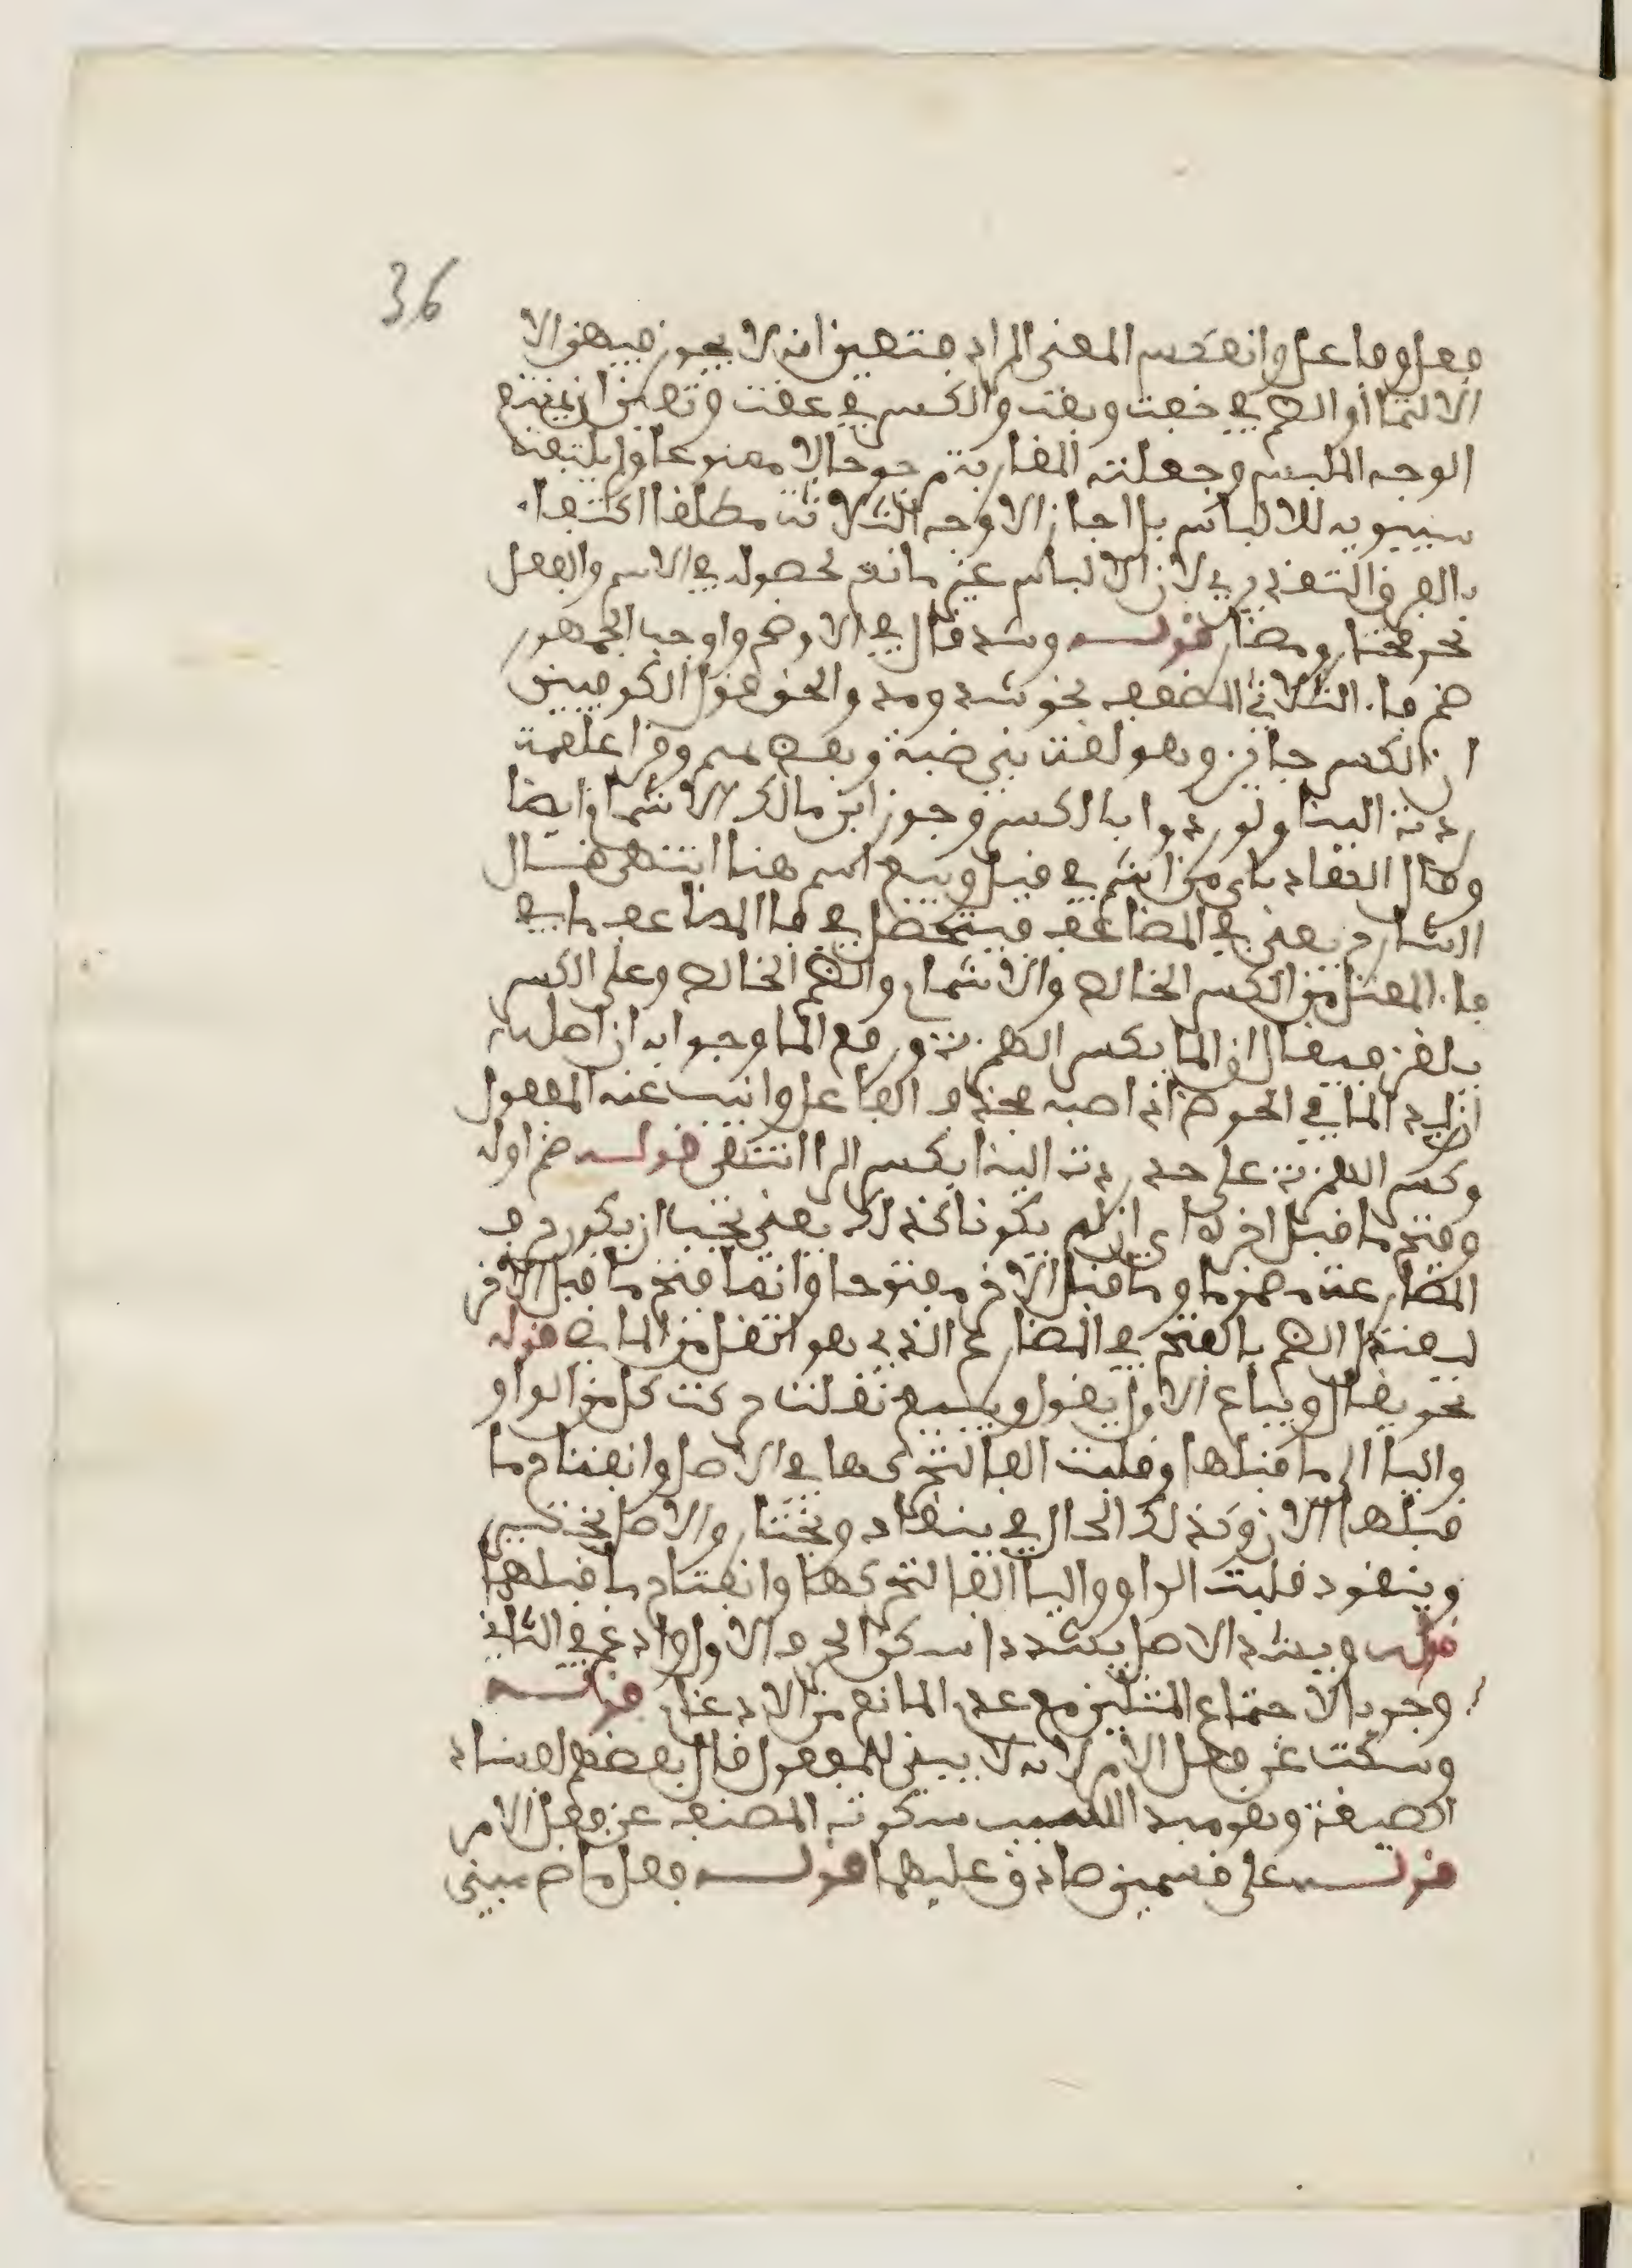 36
فعل وفاعل وانعكس المعنى المراد فتعين انه لا يجوز فيهن الا
الاشمام او الضم في خفت وبعت والكسر في عقت وتعين ان يمتنع
الوجه الملبس وجعلته المغاربة مرجوحا لا ممنوعا ولم يلتفت
سيبويه للالباس بل اجاز الاوجه الثلاثة مطلقا اكتفاء
بالفرق التقديري لان الالباس غير مانع لحصوله في الاسم والفعل
نحو مختار ومضار قوله وشد قال في الاوضح واوجب الجمهور
ضم فاء الثلاثي المضعف نحو شد ومد والحق قول الكوفيين
ان الكسر جائز وهو لغة بني ضبة وبعض تميم وقرأ علقمة
ردت الينا ولو ردوا بالكسر وجوز ابن مالك الاشمام ايضا
وقال النقاد باي من اشم في قيل وبيع اشم هنا انتهى قال
الشارح يعني في المضاعف فيتحصل في فا المضاعف ما في
فاء المعتل من الكسر الخالص والاشمام والضم الخالص وعلى الكسر
يلغز فيقال ان الما بكسر الهمزة ورفع الما وجوابه ان اصله
ان زيد الما في الحوض اذ اصبه فحذف الفاعل وانيب عنه المفعول
وكسر الهمزة على حد ردت الينا بكسر الرا انتهى قوله ضم اوله
وفتح ما قبل اخره اي ان لم يكونا كذلك يعني يجب ان يكون حرف
المضارعة مضموما وما قبل الاخر مفتوحا وانما فتح ما قبل الاخر
ليعتدل الضم بالفتح في المضارع الذي هو اثقل من الماضي قوله
نحو يقال ويباع الاول يقول ويبيع نقلت حركت كل من الواو
واليا الى ما قبلها وقلبت الفا لتحركها في الاصل وانفتاح ما
قبلها الان وكذلك الحال في ينقاد ويختار والاصل يختير
وينقود قلبت الواو واليا الفا لتحركها وانفتاح ما قبلها
قوله ويشد الاصل يشدد اسكن الحرف الاول وادغم في الثاني
وجوبا لاجتماع المثلين مع عدم المانع من الادغام قوله
وسكت عن فعل الامر لانه لا يبنى للمفعول قال بعضهم لفساد
الصيغة وهو مبدا السبب سكوته المصنف عن فعل الامر
قوله على قسمين صادق عليهما قوله فعل ماض مبني